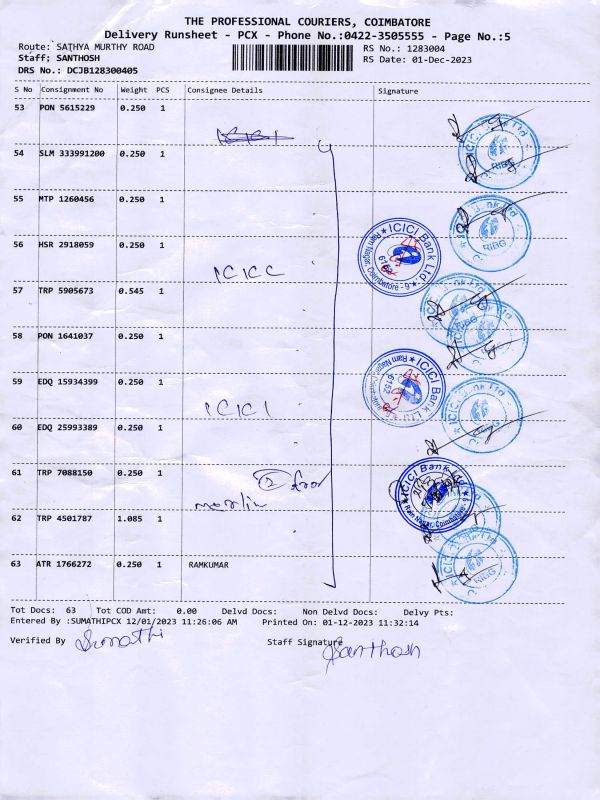 THE PROFESSIONAL COURIERS, COIMBATORE
Delivery Runsheet - PCX - Phone No.:0422-3505555 - Page No.:5
Route: SATHYA MURTHY ROAD
RS No.: 1283004
Staff; SANTHOSH
RS Date: 01-Dec-2023
DRS No.: DCJB128300405
S No Consignment No Weight PCS Consignee Details Signature
53 PON 5615229 0.250 1
ICICI
54 SLM 333991200 0.250 1
55 MTP 1260456 0.250 1
56 HSR 2918059 0.250 1
ICICI
57 TRP 5905673 0.545 1
58 PON 1641037 0.250 1
59 EDQ 15934399 0.250 1
ICICI
60 EDQ 25993389 0.250 1
61 TRP 7088150 0.250 1
62 TRP 4501787 1.085 1
63 ATR 1766272 0.250 1 RAMKUMAR
ICICI Bank Ltd
Ram Nagar, Coimbatore - 9
6152
ICICI Bank Ltd
RIBG
Tot Docs: 63 Tot COD Amt: 0.00 Delvd Docs: Non Delvd Docs: Delvy Pts:
Entered By :SUMATHIPCX 12/01/2023 11:26:06 AM Printed On: 01-12-2023 11:32:14
Verified By Sumathi Staff Signature Santhosh